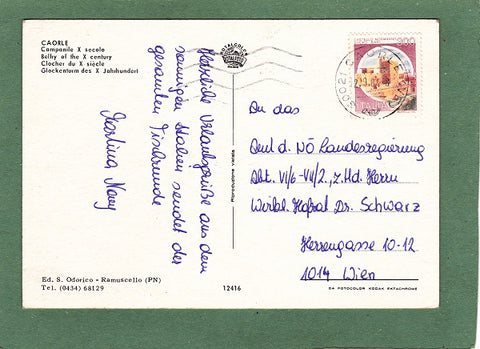 CAORLE
Campanile X secolo
Belfry of the X century
Clocher du X siècle
Glockenturm des X Jahrhundert
Herzliche Urlaubsgrüße aus dem
sonnigen Italien sendet der
gesamten Tischrunde
An das
Amt d. NÖ Landesregierung
Abt. VI/6-VII/2, z.Hd. Herrn
Wirkl. Hofrat Dr. Schwarz
Herrengasse 10-12
1014 Wien
Ed. S. Odorico - Ramuscello (PN)
Tel. (0434) 68129
12416
DA FOTOCOLOR KODAK EKTACHROME
Riproduzione vietata
ROTALCOLOR
30021 CAORLE
200